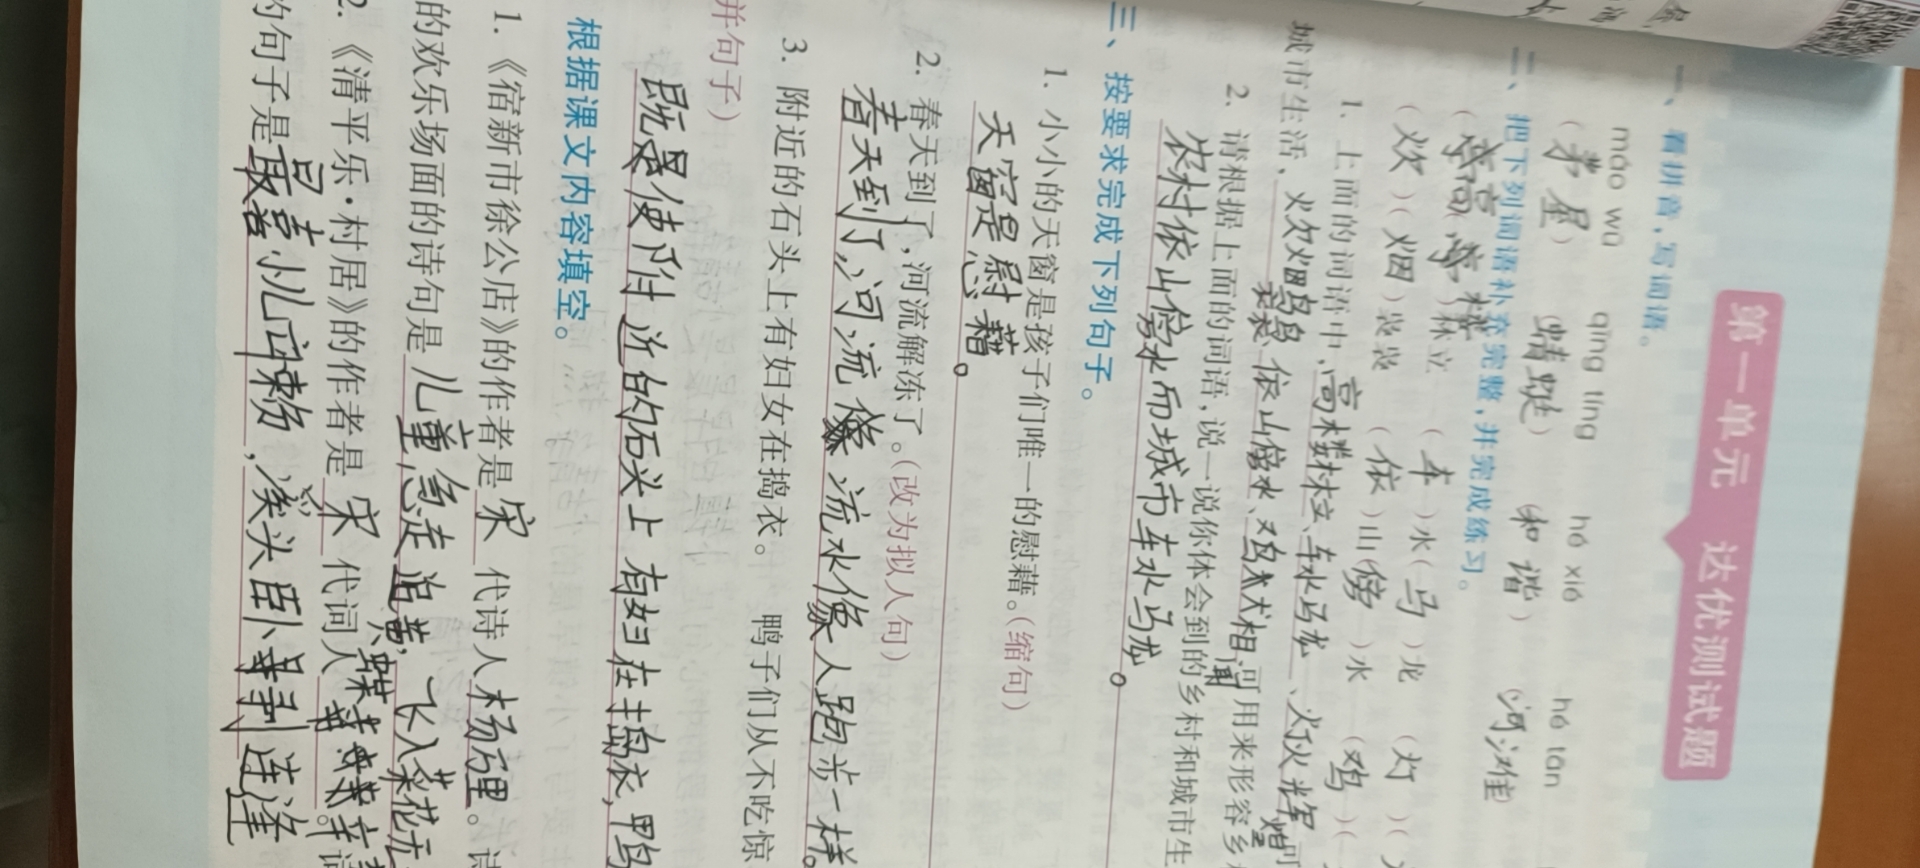 第一单元 达优测试题
一、看拼音，写词语。
máo wū qīng tíng hé xié hé tān
（茅屋）（蜻蜓）（和谐）（河滩
二、把下列词语补充完整，并完成练习。
）林立 （车）水（马）龙 （灯）（
（炊）（烟）袅袅 （依）山（傍）水 （鸡）（
1. 上面的词语中，高楼林立、车水马龙、灯火辉煌可
城市生活，炊烟袅袅、依山傍水、鸡犬相闻可用来形容乡
2. 请根据上面的词语，说一说你体会到的乡村和城市生
农村依山傍水而城市车水马龙。
三、按要求完成下列句子。
1. 小小的天窗是孩子们唯一的慰藉。（缩句）
天窗是慰藉。
2. 春天到了，河流解冻了。（改为拟人句）
春天到了，河流像流水像人跑步一样。
3. 附近的石头上有妇女在捣衣。 鸭子们从不吃惊
并句子）
既是使附近的石头上有妇在捣衣，鸭
根据课文内容填空。
1.《宿新市徐公店》的作者是宋代诗人杨万里。诗
的欢乐场面的诗句是儿童急走追黄蝶，飞入菜花无
2.《清平乐·村居》的作者是宋代词人辛
的句子是最喜小儿亡赖，溪头卧剥莲蓬